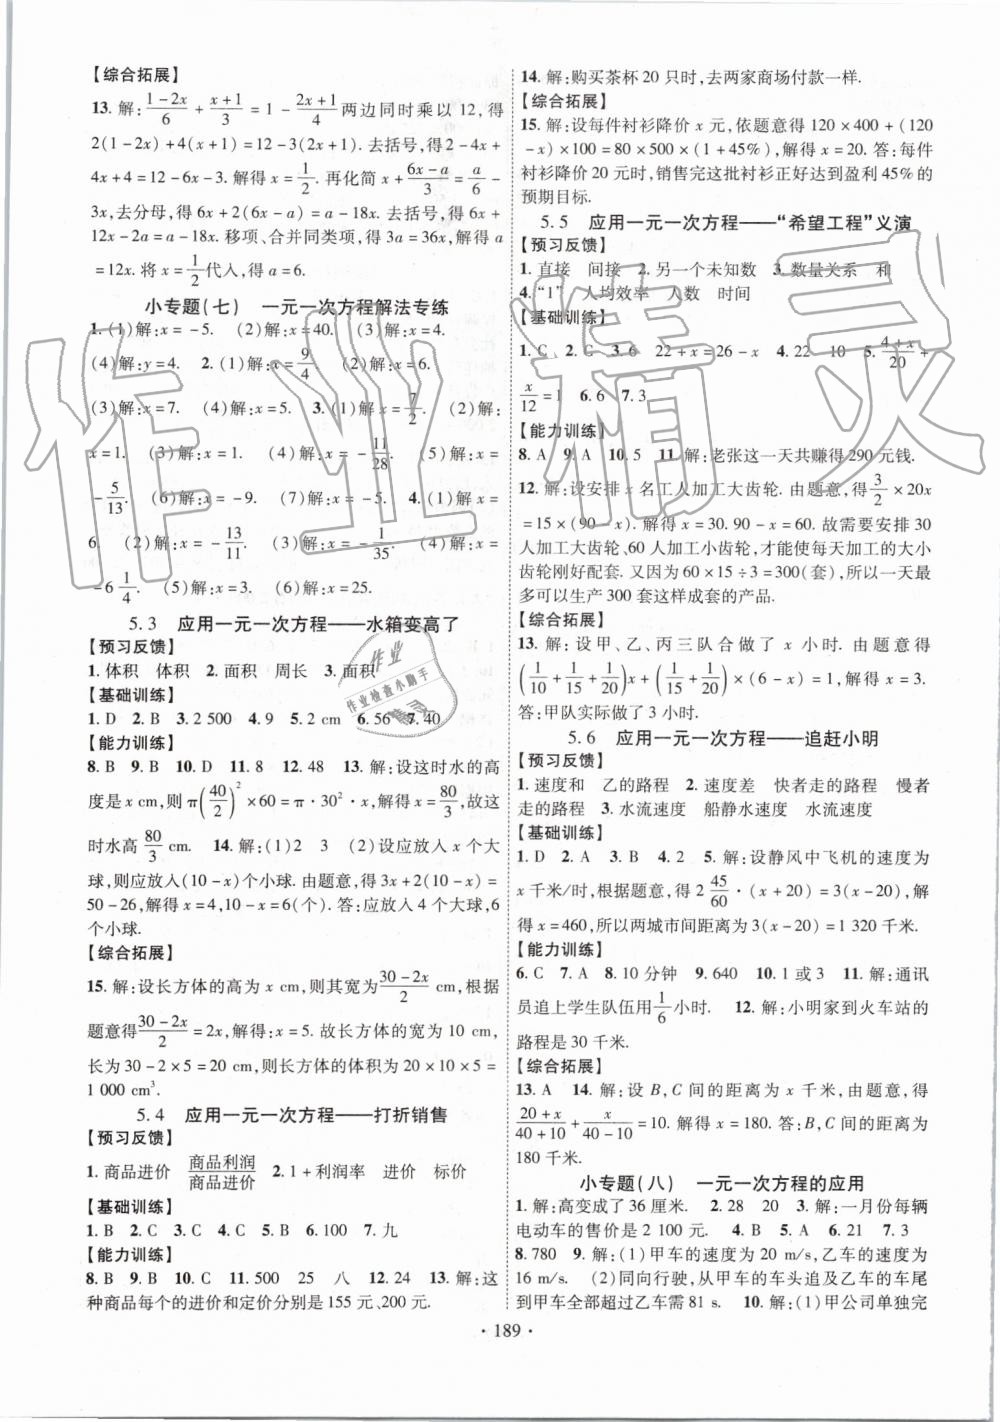 【综合拓展】
13. 解:(1-2x)/6 + (x+1)/3 = 1 - (2x+1)/4 两边同时乘以 12, 得
2(1-2x)+4(x+1)=12-3(2x+1). 去括号, 得 2-4x+
4x+4=12-6x-3. 解得 x=1/2. 再化简 x+(6x-a)/3=a/6-
3x, 去分母, 得 6x+2(6x-a)=a-18x. 去括号, 得 6x+
12x-2a=a-18x. 移项、合并同类项, 得 3a=36x, 解得 a
=12x. 将 x=1/2代入, 得 a=6.
小专题(七) 一元一次方程解法专练
1. (1)解:x=-5. (2)解:x=40. (3)解:x=6.
(4)解:y=4. 2. (1)解:x=9/4. (2)解:x=6.
(3)解:x=7. (4)解:x=5. 3. (1)解:x=7/2. (2)解:
x=1. (3)解:x=1. (4)解:x=-11/28. (5)解:x=
-5/13. (6)解:x=-9. (7)解:x=-5. 4. (1)解x=
6. (2)解:x=-13/11. (3)解:x=-1/35. (4)解:x=
-6 1/4. (5)解:x=3. (6)解:x=25.
5.3 应用一元一次方程——水箱变高了
【预习反馈】
1. 体积 体积 2. 面积 周长 3. 面积
【基础训练】
1. D 2. B 3. 2 500 4. 9 5. 2 cm 6. 56 7. 40
【能力训练】
8. B 9. B 10. D 11. 8 12. 48 13. 解:设这时水的高
度是 x cm, 则 π(40/2)²×60=π·30²·x, 解得 x=80/3, 故这
时水高 80/3 cm. 14. 解:(1)2 3 (2)设应放入 x 个大
球, 则应放入(10-x)个小球. 由题意, 得 3x+2(10-x)=
50-26, 解得 x=4, 10-x=6(个). 答:应放入 4 个大球, 6
个小球.
【综合拓展】
15. 解:设长方体的高为 x cm, 则其宽为(30-2x)/2 cm, 根据
题意得(30-2x)/2=2x, 解得:x=5. 故长方体的宽为 10 cm,
长为 30-2×5=20 cm, 则长方体的体积为 5×10×20=
1 000 cm³.
5.4 应用一元一次方程——打折销售
【预习反馈】
1. 商品进价 商品利润/商品进价 2. 1+利润率 进价 标价
【基础训练】
1. B 2. C 3. C 4. A 5. B 6. 100 7. 九
【能力训练】
8. B 9. B 10. C 11. 500 25 八 12. 24 13. 解:这
种商品每个的进价和定价分别是 155 元、200 元.
14. 解:购买茶杯 20 只时, 去两家商场付款一样.
【综合拓展】
15. 解:设每件衬衫降价 x 元, 依题意得 120×400+(120
-x)×100=80×500×(1+45%), 解得 x=20. 答:每件
衬衫降价 20 元时, 销售完这批衬衫正好达到盈利 45%的
预期目标.
5.5 应用一元一次方程——“希望工程”义演
【预习反馈】
1. 直接 间接 2. 另一个未知数 3. 数量关系 和
4. “1” 人均效率 人数 时间
【基础训练】
1. C 2. C 3. 6 22+x=26-x 4. 22 10 5. (4+x)/20+
x/12=1 6. 6 7. 3
【能力训练】
8. A 9. A 10. 5 11. 解:老张这一天共赚得 290 元钱.
12. 解:设安排 x 名工人加工大齿轮. 由题意, 得 3/2×20x
=15×(90-x). 解得 x=30. 90-x=60. 故需要安排 30
人加工大齿轮、60 人加工小齿轮, 才能使每天加工的大小
齿轮刚好配套. 又因为 60×15÷3=300(套), 所以一天最
多可以生产 300 套这样成套的产品.
【综合拓展】
13. 解:设甲、乙、丙三队合做了 x 小时. 由题意得
(1/10+1/15+1/20)x+(1/15+1/20)×(6-x)=1, 解得 x=3.
答:甲队实际做了 3 小时.
5.6 应用一元一次方程——追赶小明
【预习反馈】
1. 速度和 乙的路程 2. 速度差 快者走的路程 慢者
走的路程 3. 水流速度 船静水速度 水流速度
【基础训练】
1. D 2. A 3. B 4. 2 5. 解:设静风中飞机的速度为
x 千米/时, 根据题意, 得 2 45/60·(x+20)=3(x-20), 解
得 x=460, 所以两城市间距离为 3(x-20)=1 320 千米.
【能力训练】
6. C 7. A 8. 10 分钟 9. 640 10. 1 或 3 11. 解:通讯
员追上学生队伍用1/6小时. 12. 解:小明家到火车站的
路程是 30 千米.
【综合拓展】
13. A 14. 解:设 B, C 间的距离为 x 千米, 由题意, 得
(20+x)/(40+10)+x/(40-10)=10. 解得 x=180. 答:B, C 间的距离为
180 千米.
小专题(八) 一元一次方程的应用
1. 解:高变成了 36 厘米. 2. 28 20 3. 解:一月份每辆
电动车的售价是 2 100 元. 4. B 5. A 6. 21 7. 3
8. 780 9. 解:(1)甲车的速度为 20 m/s, 乙车的速度为
16 m/s. (2)同向行驶, 从甲车的车头追及乙车的车尾
到甲车全部超过乙车需 81 s. 10. 解:(1)甲公司单独完
· 189 ·
作业精灵
作业
作业检查小助手